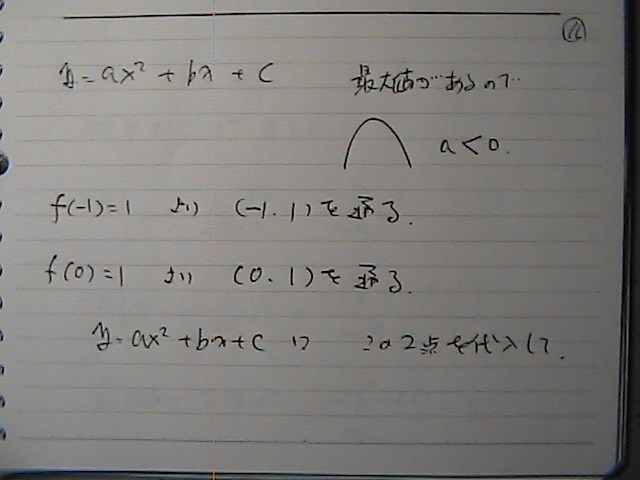 ⑯
y=ax²+bx+c 最大値があるので
a<0.
f(-1)=1 より (-1.1)を通る.
f(0)=1 より (0.1)を通る.
y=ax²+bx+c に この2点を代入して.